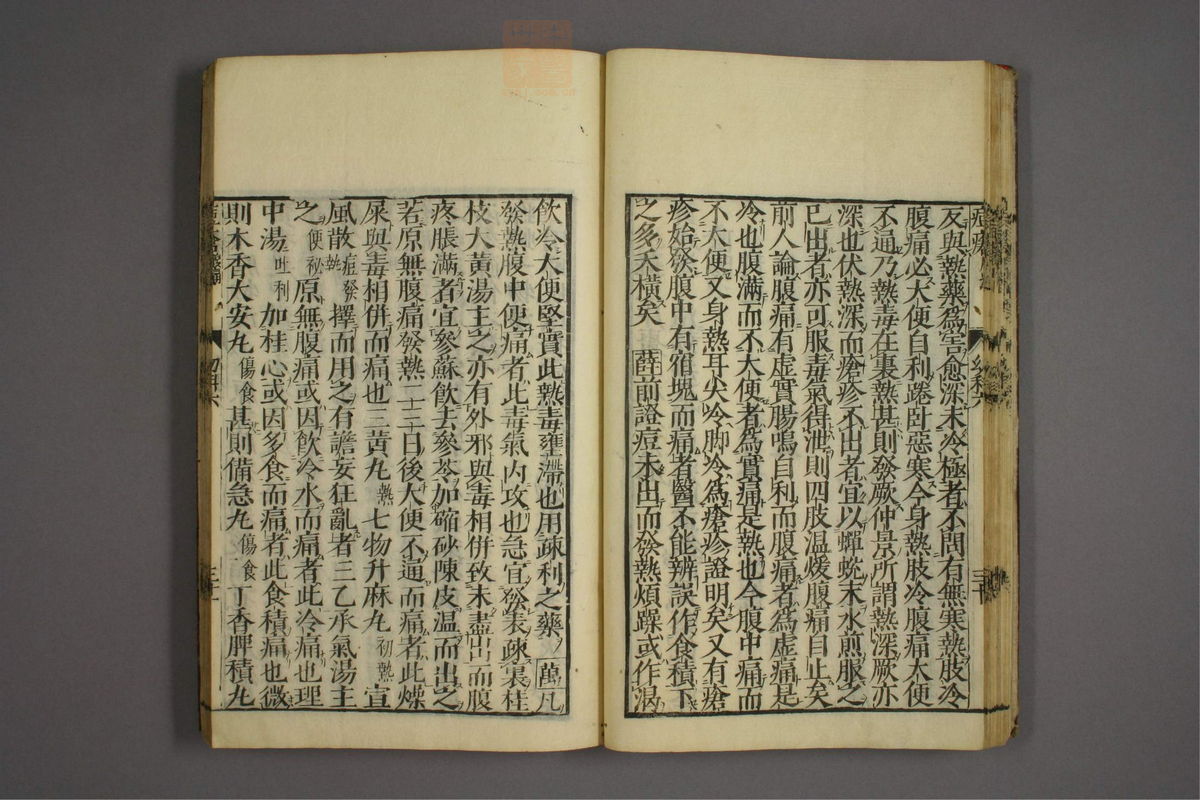 反與熱藥爲害愈深末冷極者不問有無寒熱肢冷
腹痛必大便自利踡卧惡寒今身熱肢冷腹痛大便
不通乃熱毒在裏熱甚則發厥仲景所謂熱深厥亦
深也伏熱深而瘡疹不出者宜以蟬蛻末水煎服之
已出者亦可服毒氣得泄則四肢温煖腹痛自止矣
前人論腹痛有虚實腸鳴自利而腹痛者為虚痛是
冷也腹滿而不大便者為實痛是熱也今腹中痛而
不大便又身熱耳尖冷脚冷為瘡疹證明矣又有瘡
疹始發腹中有宿塊而痛者醫不能辨誤作食積下
之多夭橫矣 薛前證痘未出而發熱煩躁或作渴
飲冷大便堅實此熱毒壅滯也用疎利之藥 萬凡
發熱腹中便痛者此毒氣内攻也急宜發表疎裏桂
枝大黃湯主之亦有外邪與毒相併致未盡出而腹
疼脹滿者宜參蘇飲去參苓加縮砂陳皮温而出之
若原無腹痛發熱一二三日後大便不通而痛者此燥
屎與毒相併而痛也三黃九熱七物升麻九初熱宣
風散痘發熱擇而用之有譫妄狂亂者三乙承氣湯主
之便秘原無腹痛或因飲冷水而痛者此冷痛也理
中湯吐利加桂心或因多食而痛者此食積痛也微
則木香大安九傷食甚則備急九傷食丁香脾積九
幼科六